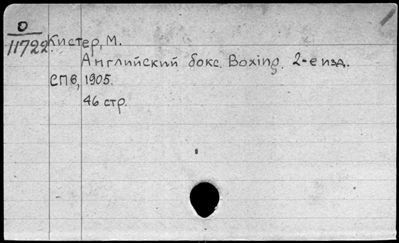 О
11722
Кистер, М.
Английский бокс. Boxing. 2-е изд.
СПб, 1905.
46 стр.